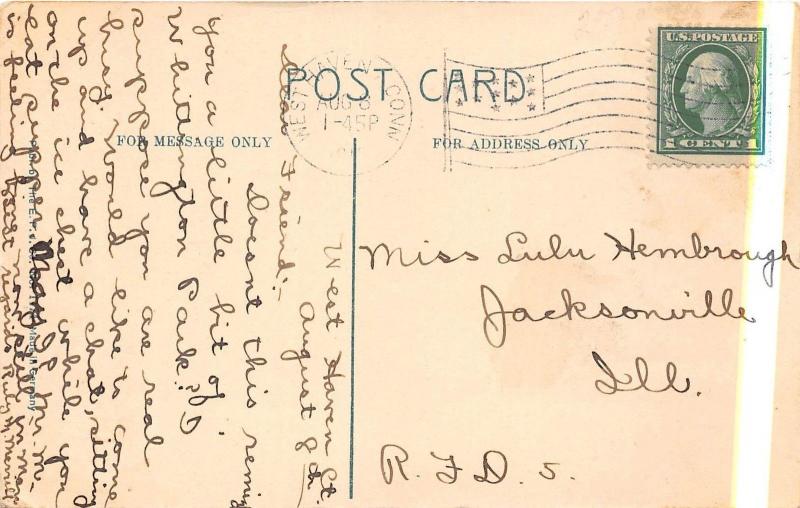 POST CARD
FOR MESSAGE ONLY
FOR ADDRESS ONLY
WEST HAVEN CONN
AUG 8
1-45P
U.S. POSTAGE
1 CENT 1
West Haven Ct.
August 8
Dear Friend:-
Doesnt this remind
you a little bit of
Whittington Park? I
suppose you are real
busy. Would like to come
up and have a chat, sitting
on the ice chest while you
eat supper.
is feeling
regards Ruby M. Merrill
Made in Germany
Miss Lulu Hembrough
Jacksonville
Ill.
R.F.D. 5.